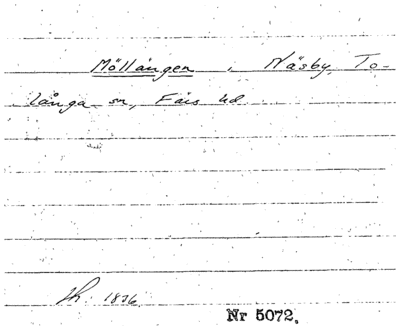 Möllängen, Näsby, To-
långa sn, Färs hd
sk. 1836
Nr 5072.